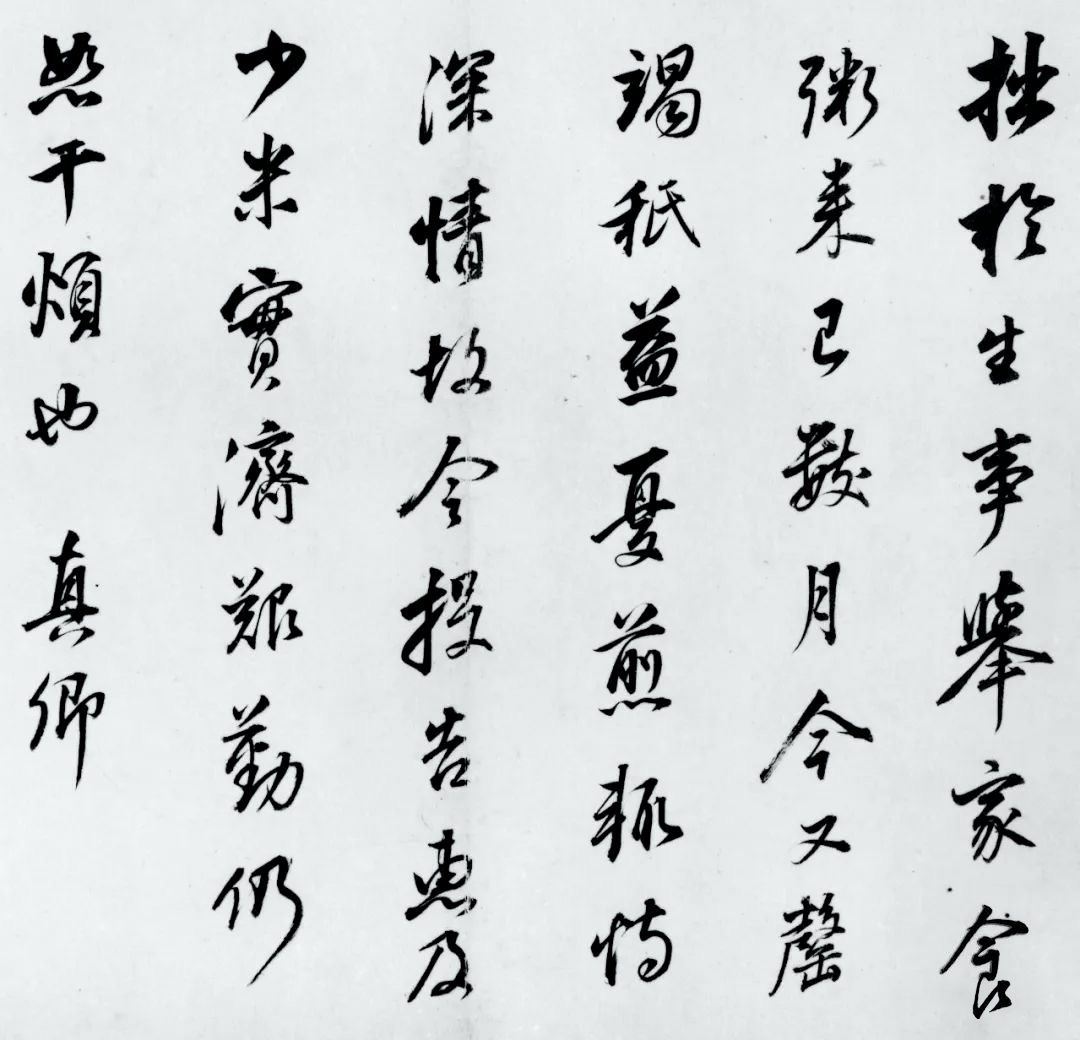 拙於生事舉家食
粥来已數月今又罄
竭秖益憂煎輙恃
深情故令投告惠及
少米實濟艱勤仍
恕干煩也真卿